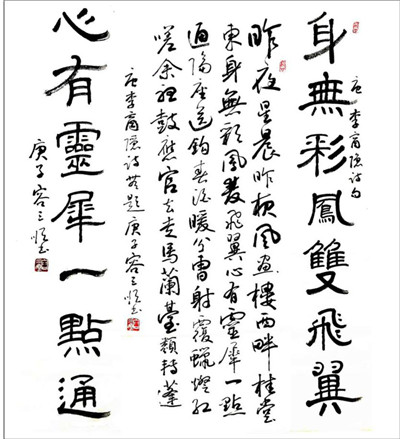 身無彩鳳雙飛翼
唐李商隱詩句
昨夜星辰昨夜風畫樓西畔桂堂
東身無彩鳳雙飛翼心有靈犀一點
通隔座送鉤春酒暖分曹射覆蠟燈紅
嗟余聽鼓應官去走馬蘭臺類轉蓬
唐李商隱詩無題庚子容三
心有靈犀一點通
庚子容三